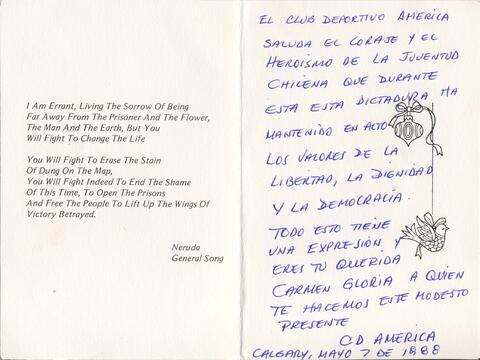 I Am Errant, Living The Sorrow Of Being
Far Away From The Prisoner And The Flower,
The Man And The Earth, But You
Will Fight To Change The Life
You Will Fight To Erase The Stain
Of Dung On The Map,
You Will Fight Indeed To End The Shame
Of This Time, To Open The Prisons
And Free The People To Lift Up The Wings Of
Victory Betrayed.
Neruda
General Song
EL CLUB DEPORTIVO AMERICA
SALUDA EL CORAJE Y EL
HEROISMO DE LA JUVENTUD
CHILENA QUE DURANTE
ESTA ESTA DICTADURA HA
MANTENIDO EN ALTO
LOS VALORES DE LA
LIBERTAD, LA DIGNIDAD
Y LA DEMOCRACIA.
TODO ESTO TIENE
UNA EXPRESIÓN Y
ERES TU QUERIDA
CARMEN GLORIA A QUIEN
TE HACEMOS ESTE MODESTO
PRESENTE
CD AMERICA
CALGARY, MAYO 7 DE 1988